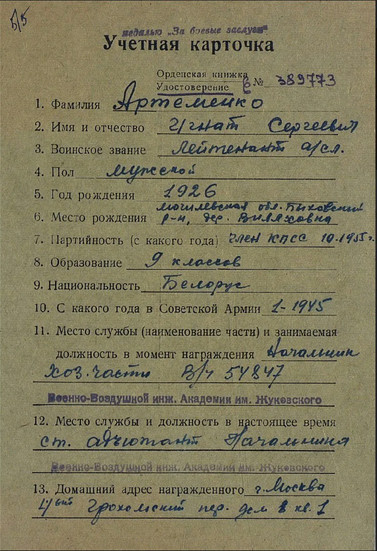 б/5
медалью „За боевые заслуги"
Учетная карточка
Орденская книжка
Удостоверение В № 389773
1. Фамилия Артеменко
2. Имя и отчество Игнат Сергеевич
3. Воинское звание Лейтенант а/сл.
4. Пол Мужской
5. Год рождения 1926
Могилевская обл. Быховский
6. Место рождения р-н, дер. Виляховка
7. Партийность (с какого года) член КПСС 10.1955 г.
8. Образование 9 классов
9. Национальность Белорус
10. С какого года в Советской Армии 1-1945
11. Место службы (наименование части) и занимаемая
должность в момент награждения Начальник
хоз. части В/ч 54847
Военно-Воздушной инж. Академии им. Жуковского
12. Место службы и должность в настоящее время
ст. адъютант Начальника
Военно-Воздушной инж. Академии им. Жуковского
13. Домашний адрес награжденного г. Москва
Грохольский пер. дом 2 кв. 1